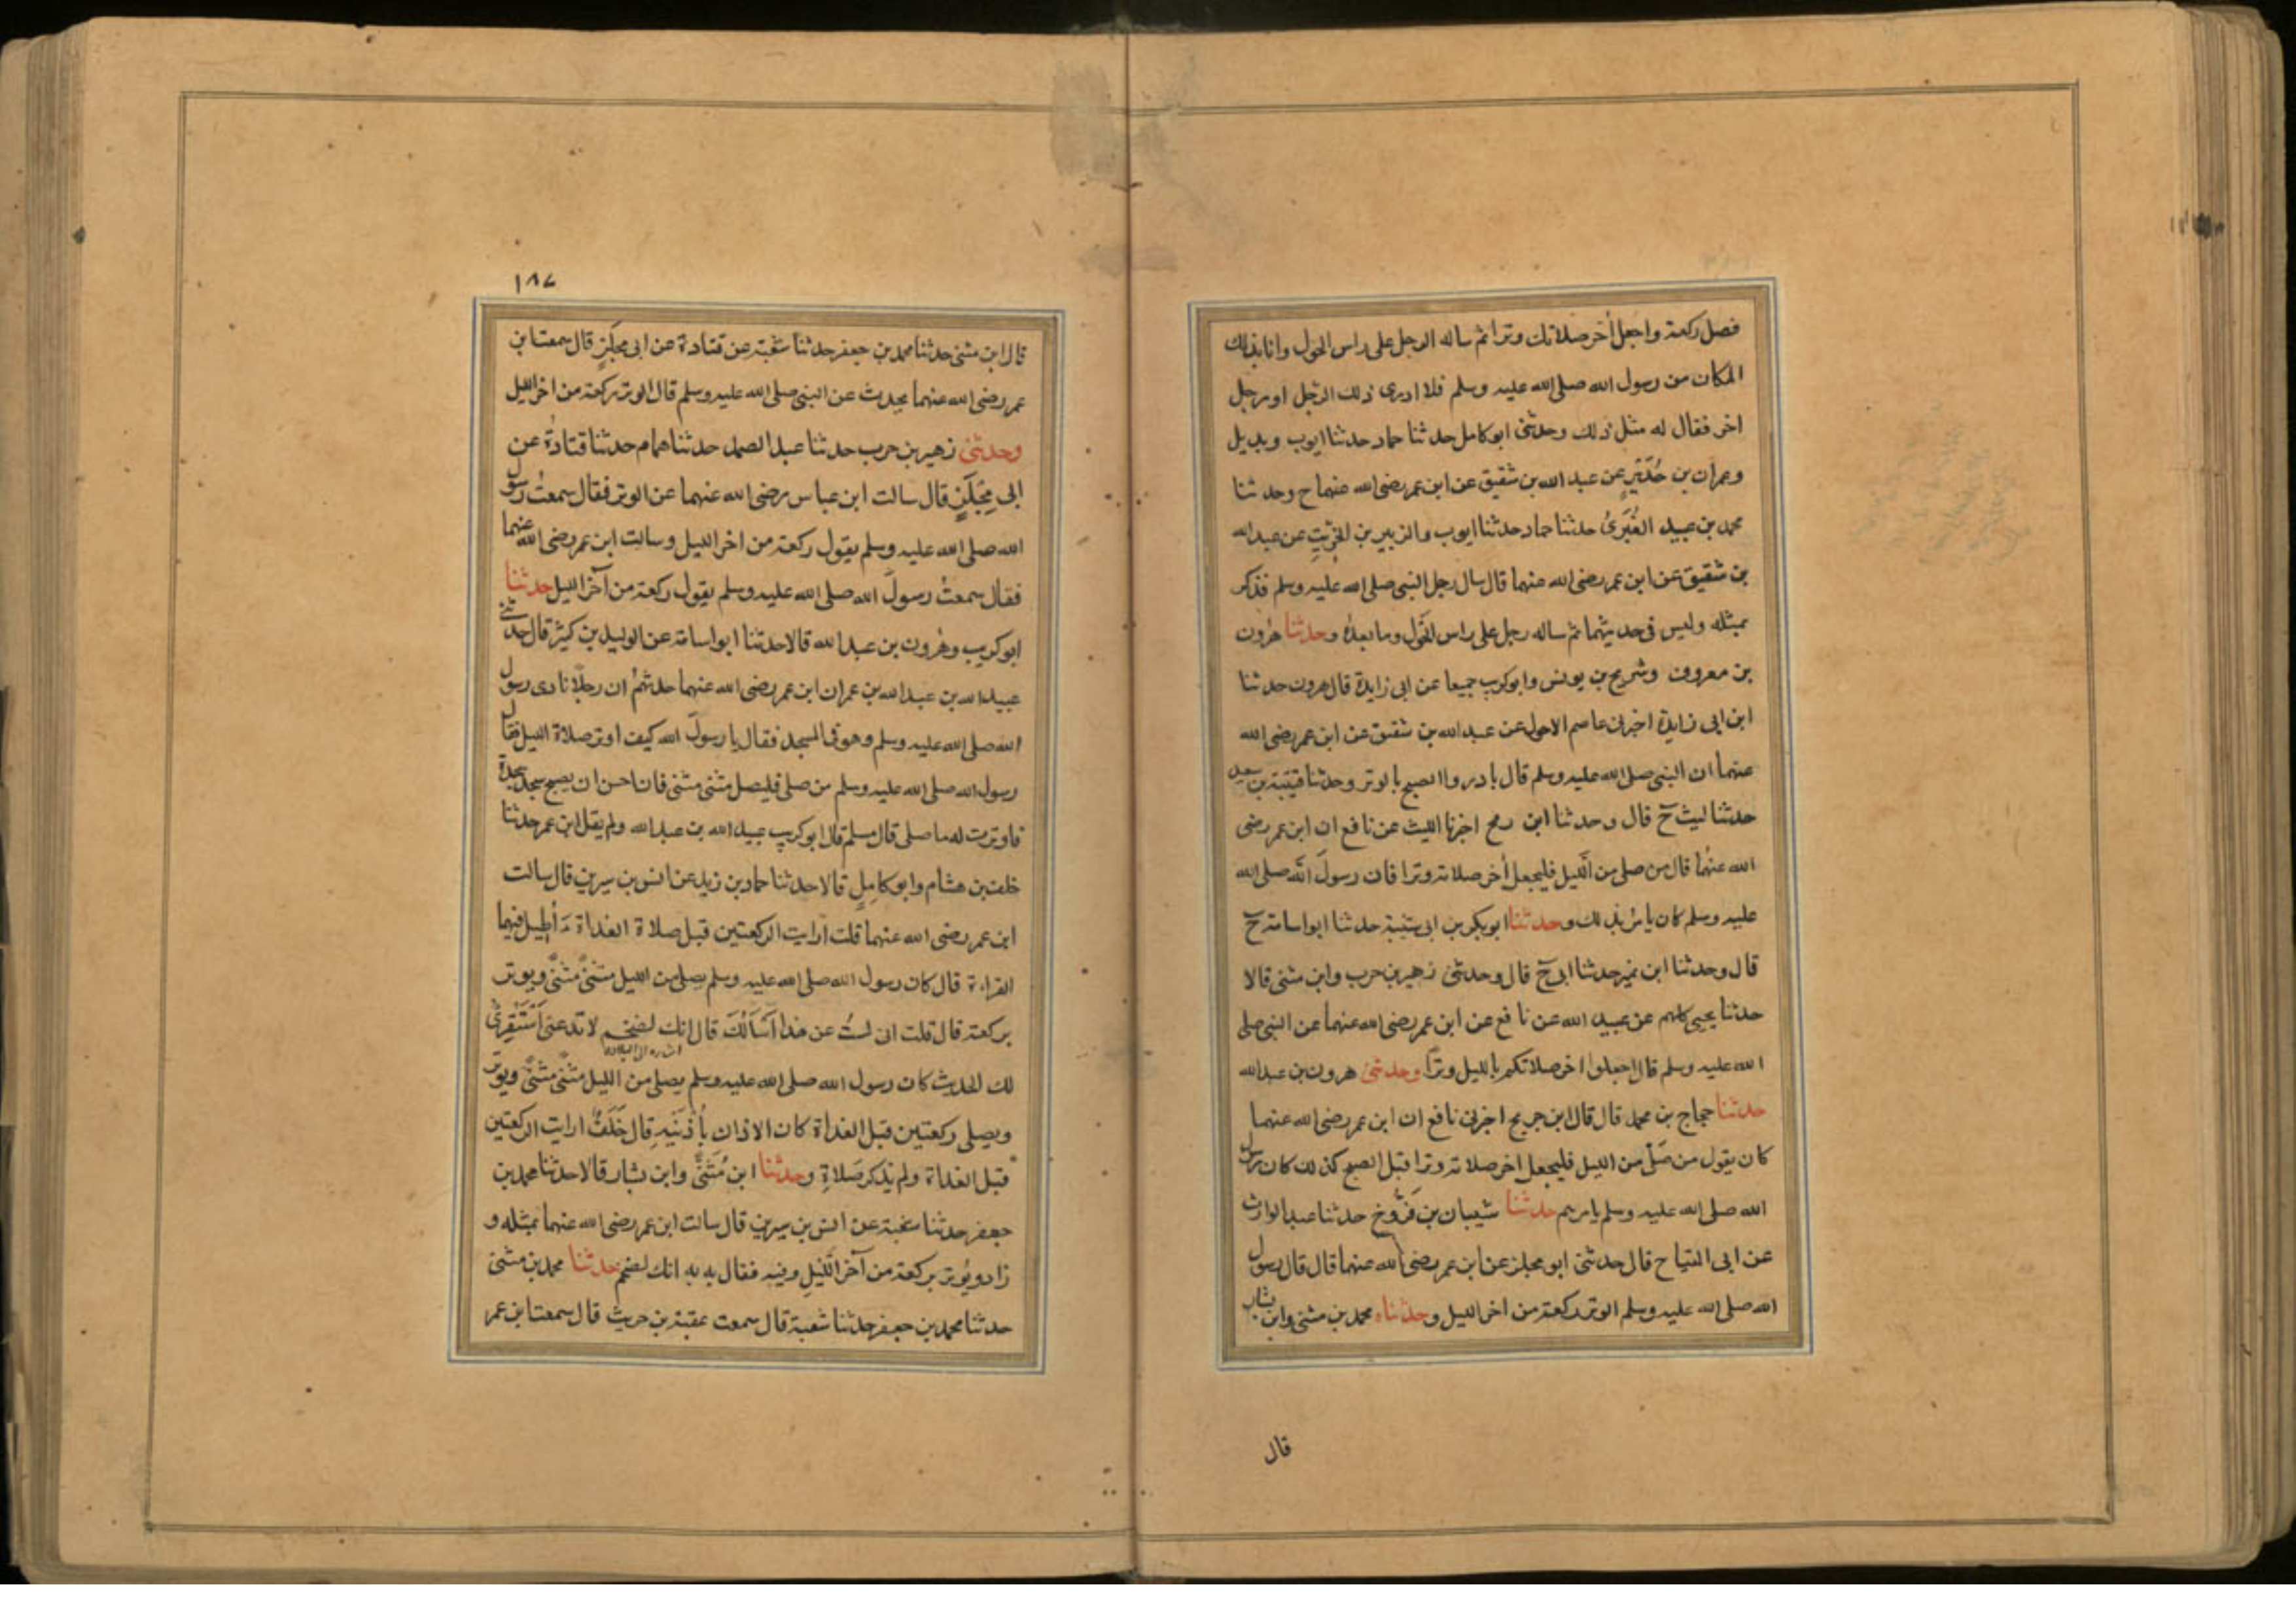 فصل ركعة واجعل أخر صلاتك وترا ثم ساله الرجل على راس الحول وانا بذلك
المكان من رسول الله صلى الله عليه وسلم فلا ادرى ذلك الرجل او رجل
اخر فقال له مثل ذلك وحدثنى ابو كامل حدثنا حماد حدثنا ايوب وبديل
وعمران بن حُدَيْرٍ عن عبد الله بن شقيق عن ابن عمر رضى الله عنهما ح وحدثنا
محمد بن عبيد الغُبَرىُّ حدثنا حماد حدثنا ايوب والزبير بن الخِرِّيتِ عن عبد الله
بن شقيق عن ابن عمر رضى الله عنهما قال سال رجل النبى صلى الله عليه وسلم فذكر
بمثله وليس فى حديثهما ثم ساله رجل على راس الحَول وما بعدهُ وحدثنا هٰرون
بن معروف وشريح بن يونس وابو كريب جميعا عن ابى زايدة قال هرون حدثنا
ابن ابى زايدة اخبرنى عاصم الاحول عن عبد الله بن شقيق عن ابن عمر رضى الله
عنهما ان النبى صلى الله عليه وسلم قال بادروا الصبح بالوتر وحدثنا قتيبة بن سعيد
حدثنا ليث ح قال وحدثنا ابن رمح اخبرنا الليث عن نافع ان ابن عمر رضى
الله عنهُما قال من صلى من اللَّيل فليجعل أخر صلاته وترا فان رسولَ اللَّه صلى الله
عليه وسلم كان يامر بذلك وحدثنا ابو بكر بن ابى شيبة حدثنا ابو اسامة ح
قال وحدثنا ابن نمير حدثنا ابى ح قال وحدثنى زهير بن حرب وابن مثنى قالا
حدثنا يحيى كلهم عن عبيد الله عن نافع عن ابن عمر رضى الله عنهما عن النبى صلى
الله عليه وسلم قال اجعلوا اخر صلاتكم بالليل وترًا وحدثنى هرون بن عبد الله
حدثنا حجاج بن محمد قال قال ابن جريح اخبرنى نافع ان ابن عمر رضى الله عنهما
كان يقول من صَلّى من الليل فليجعل اخر صلاته وترا قبل الصبح كذلك كان رسول
الله صلى الله عليه وسلم يامرهم حدثنا شيبان بن فَرُّوخ حدثنا عبد الوارث
عن ابى التياح قال حدثنى ابو مجلز عن ابن عمر رضى الله عنهما قال قال رسول
الله صلى الله عليه وسلم الوتر ركعة من اخر الليل وحدثناه محمد بن مثنى وابن بشار
قال
١٨٧
قال ابن مثنى حدثنا محمد بن جعفر حدثنا شعبة عن قتادة عن ابى مِجلَزٍ قال سمعت ابن
عمر رضى الله عنهما يحدث عن النبى صلى الله عليه وسلم قال الوتر ركعة من اخر الليل
وحدثنى زهير بن حرب حدثنا عبد الصمد حدثنا همام حدثنا قتادةُ عن
ابى مِجْلَزٍ قال سالت ابن عباس رضى الله عنهما عن الوتر فقال سمعتُ رسول
الله صلى الله عليه وسلم يقول ركعة من اخر الليل وسالت ابن عمر رضى الله عنهما
فقال سمعتُ رسولَ الله صلى الله عليه وسلم يقول ركعة من آخر الليل حدثنا
ابو كريب وهٰرون بن عبد الله قالا حدثنا ابو اسامة عن الوليد بن كثير قال حدثنى
عبيد الله بن عبد الله بن عمر ان ابن عمر رضى الله عنهما حدثهُمْ ان رجلًا نادى رسول
الله صلى الله عليه وسلم وهو فى المسجد فقال يا رسولَ الله كيف اوتر صلاة الليل فقال
رسول الله صلى الله عليه وسلم من صلى فليصل مثنى مثنى فان احس ان يصبح سجد سجدة
فاوترت له ما صلى قال مسلم قال ابو كريب عبيد الله بن عبد الله ولم يقل ابن عمر حدثنا
خلف بن هشام وابو كامِلٍ قالا حدثنا حماد بن زيد عن انس بن سيرين قال سالت
ابن عمر رضى الله عنهما قلت ارايت الركعتين قبل صلاة الغداة ءَأُطِيل فيهما
القراءة قال كان رسول الله صلى الله عليه وسلم يصلى من الليل مثنىً مثنىً ويوتر
بركعة قال قلت انى لستُ عن هذا اَسْأَلُكَ قال انك لضخم لا تدعنى اَسْتَقْرِئُ
لك الحديث كان رسول الله صلى الله عليه وسلم يصلى من الليل مثنىً مثنىً ويوتر
ويصلى ركعتين قبل الغداة كان الاذان بِأُذُنَيْهِ قال خَلَفٌ ارايت الركعتين
قبل الغداة ولم يذكر صَلاةِ وحدثنا ابن مُثَنًّى وابن بشار قالا حدثنا محمد بن
جعفر حدثنا شعبة عن انس بن سيرين قال سالت ابن عمر رضى الله عنهما بمثله و
زاد ويُوتر بركعة من آخر اللَّيلِ وفيه فقال به به انك لضخم حدثنا محمد بن مثنى
حدثنا محمد بن جعفر حدثنا شعبة قال سمعت عقبة بن حريث قال سمعت ابن عمر